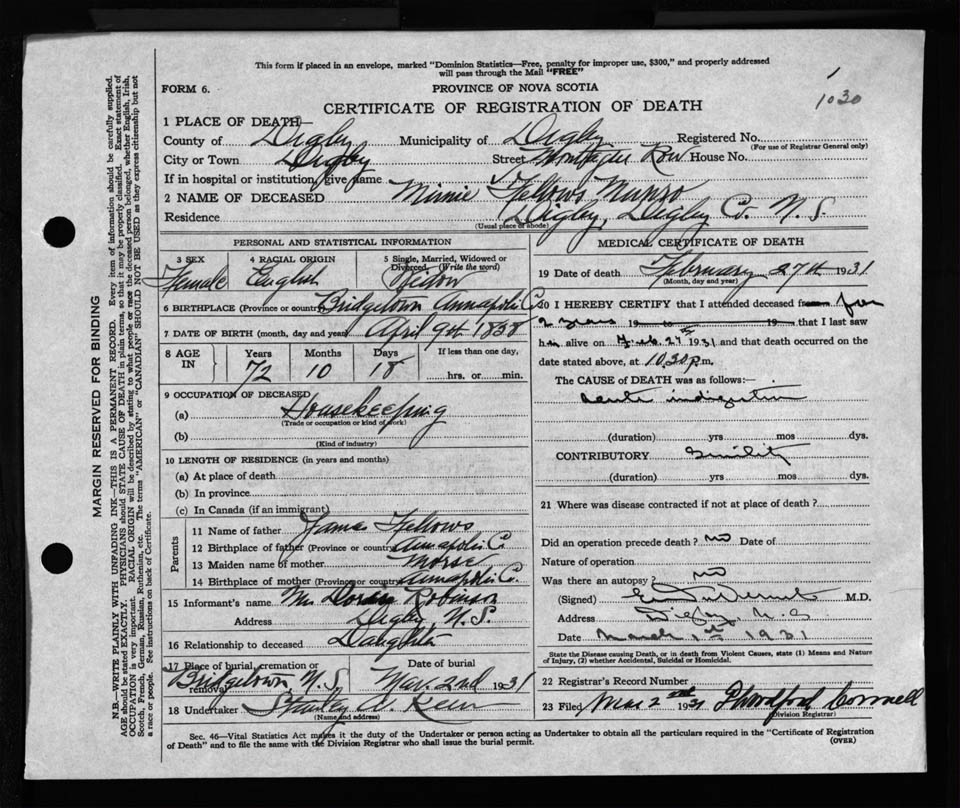 This form if placed in an envelope, marked "Dominion Statistics—Free, penalty for improper use, $300," and properly addressed
will pass through the Mail "FREE"
1
1030
FORM 6.
PROVINCE OF NOVA SCOTIA
CERTIFICATE OF REGISTRATION OF DEATH
1 PLACE OF DEATH—
County of Digby Municipality of Digby Registered No.
(For use of Registrar General only)
City or Town Digby Street Row House No.
If in hospital or institution, give name
2 NAME OF DECEASED Minnie Fellows Munro
Residence Digby, Digby Co. N.S.
(Usual place of abode)
PERSONAL AND STATISTICAL INFORMATION
3 SEX
Female
4 RACIAL ORIGIN
English
5 Single, Married, Widowed or
Divorced (Write the word)
Widow
6 BIRTHPLACE (Province or country) Bridgetown Annapolis Co
7 DATE OF BIRTH (month, day and year) April 9th 1858
8 AGE IN
Years Months Days If less than one day,
72 10 18 hrs. or min.
9 OCCUPATION OF DECEASED
(a) Housekeeping
(Trade or occupation or kind of work)
(b)
(Kind of industry)
10 LENGTH OF RESIDENCE (in years and months)
(a) At place of death
(b) In province
(c) In Canada (if an immigrant)
Parents
11 Name of father James Fellows
12 Birthplace of father (Province or country) Annapolis Co
13 Maiden name of mother Morse
14 Birthplace of mother (Province or country) Annapolis Co.
15 Informant's name Mrs Robinson
Address Digby N.S.
16 Relationship to deceased Daughter
17 Place of burial, cremation or removal
Bridgetown N.S.
Date of burial
Mar. 2nd 1931
18 Undertaker Stanley
(Name and address)
MEDICAL CERTIFICATE OF DEATH
19 Date of death February 27th 1931
(Month, day and year)
20 I HEREBY CERTIFY that I attended deceased from for
2 years 19 to 19 that I last saw
h alive on Feb. 27th 1931 and that death occurred on the
date stated above, at 10.30 p.m.
The CAUSE of DEATH was as follows:—
acute indigestion
(duration) yrs. mos. dys.
CONTRIBUTORY Senility
(duration) yrs. mos. dys.
21 Where was disease contracted if not at place of death?
Did an operation precede death? no Date of
Nature of operation
Was there an autopsy? no
(Signed) M.D.
Address Digby, N.S
Date March 1st 1931
State the Disease causing Death, or in death from Violent Causes, state (1) Means and Nature of Injury, (2) whether Accidental, Suicidal or Homicidal.
22 Registrar's Record Number
23 Filed Mar 2nd 1931
Division Registrar
Sec. 46—Vital Statistics Act makes it the duty of the Undertaker or person acting as Undertaker to obtain all the particulars required in the "Certificate of Registration
of Death" and to file the same with the Division Registrar who shall issue the burial permit. (OVER)
MARGIN RESERVED FOR BINDING
N.B.—WRITE PLAINLY WITH UNFADING INK—THIS IS A PERMANENT RECORD. Every item of information should be carefully supplied.
AGE should be stated EXACTLY. PHYSICIANS should STATE CAUSE OF DEATH in plain terms, so that it may be properly classified. Exact statement of
OCCUPATION is very important. RACIAL ORIGIN will be described by stating to what people or race the deceased person belonged, whether English, Irish,
Scotch, French, German, Russian, Ruthenian, etc. The terms "AMERICAN" or "CANADIAN" SHOULD NOT BE USED as they express citizenship but not
a race or people. See instructions on back of Certificate.